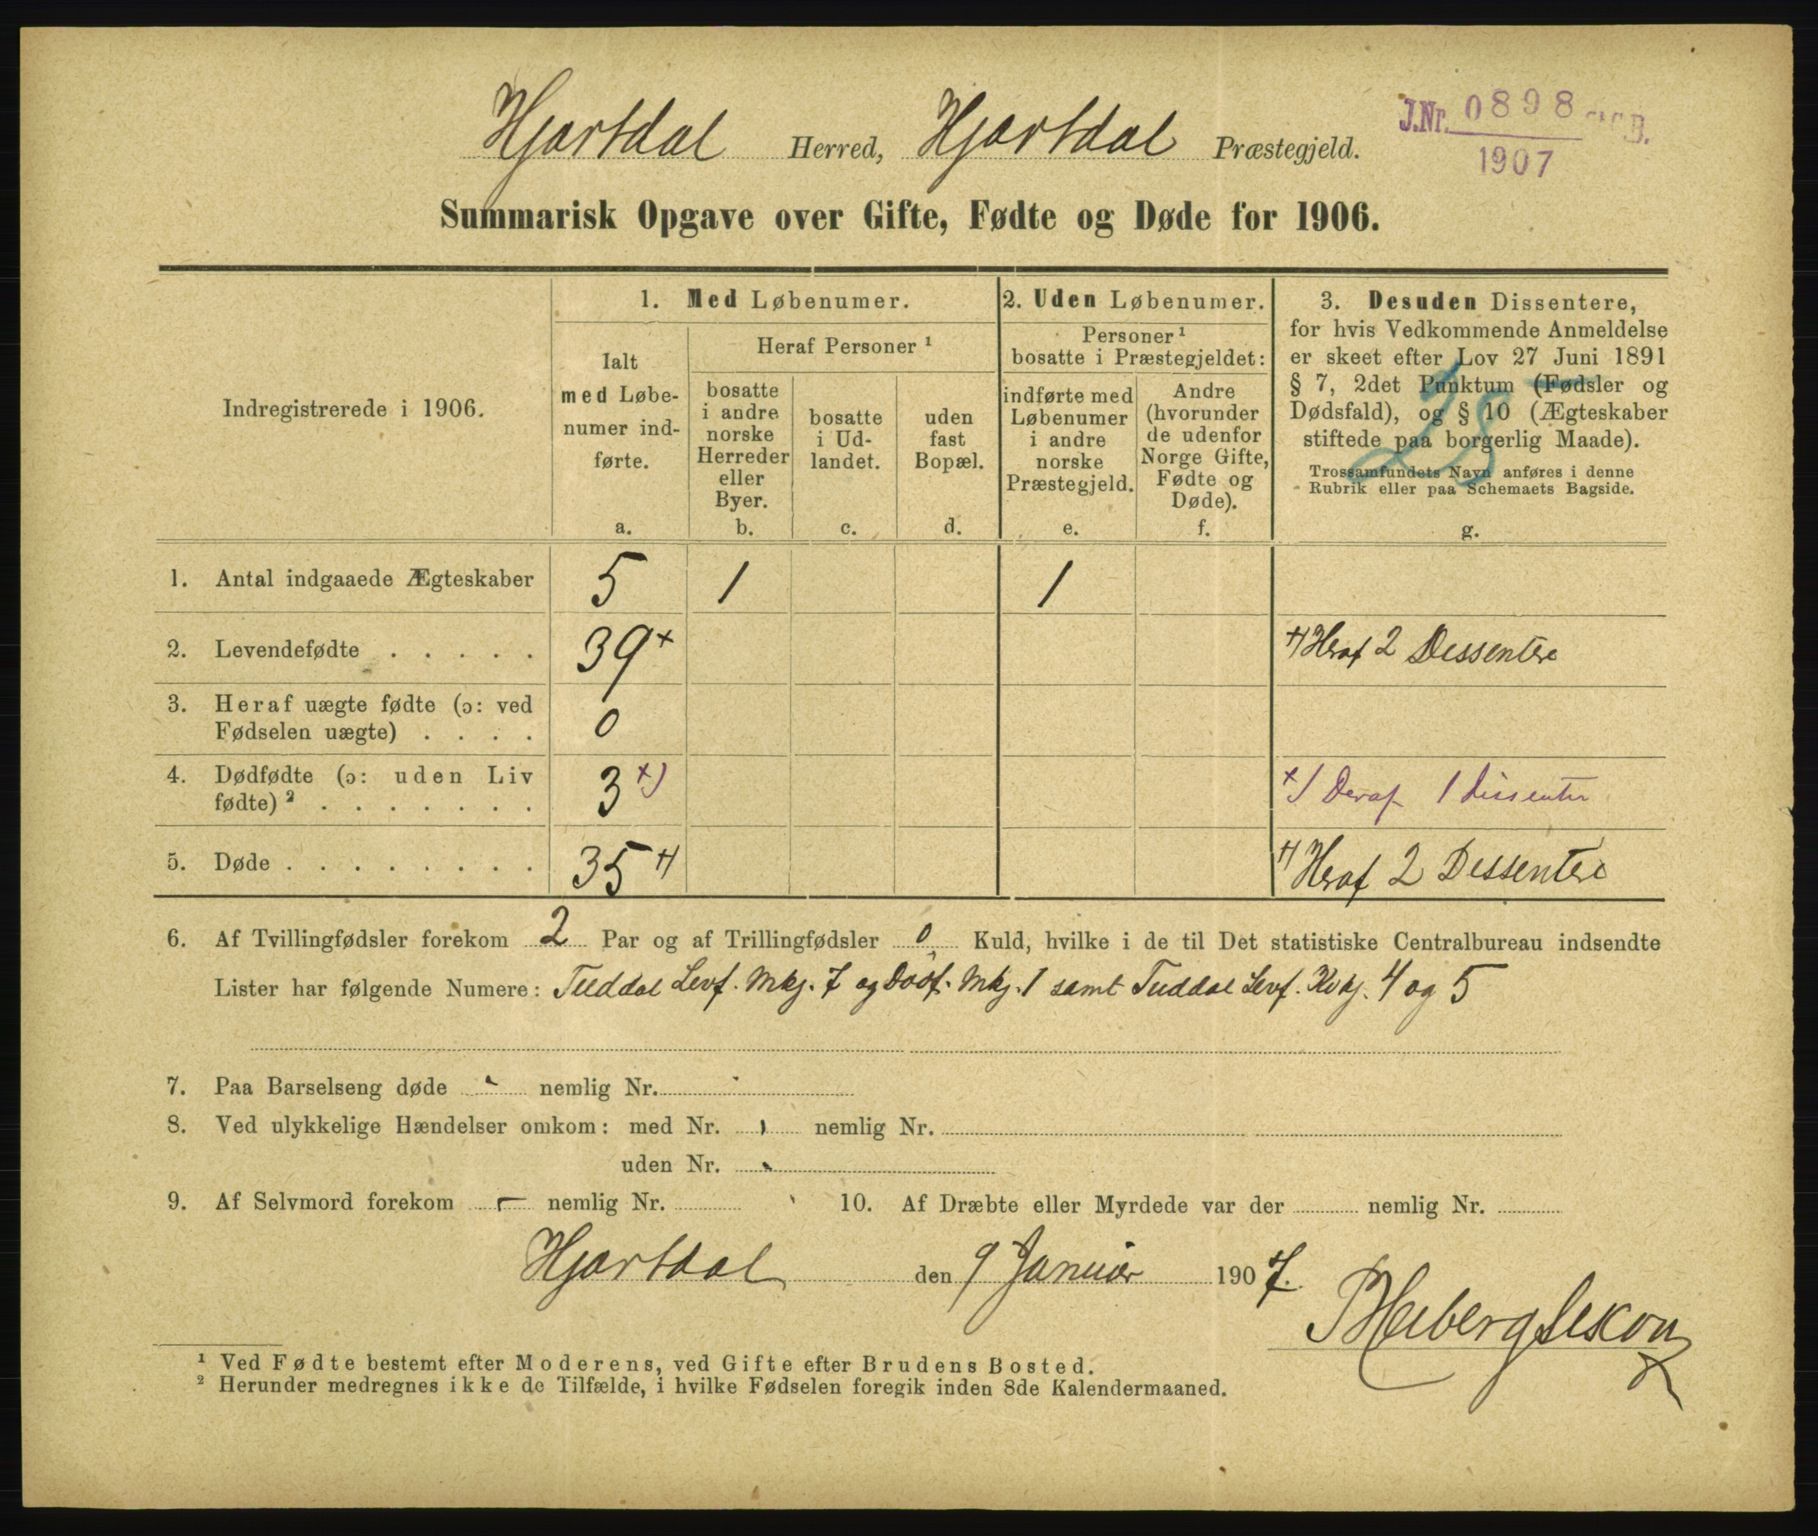 Hjartdal Herred, Hjartdal Præstegjeld.
J.Nr. 0898 B.
1907
Summarisk Opgave over Gifte, Fødte og Døde for 1906.
Indregistrerede i 1906.
1. Med Løbenumer.
Ialt
med Løbe-
numer ind-
førte.
a.
Heraf Personer ¹
bosatte
i andre
norske
Herreder
eller
Byer.
b.
bosatte
i Ud-
landet.
c.
uden
fast
Bopæl.
d.
2. Uden Løbenumer.
Personer ¹
bosatte i Præstegjeldet:
indførte med
Løbenumer
i andre
norske
Præstegjeld.
e.
Andre
(hvorunder
de udenfor
Norge Gifte,
Fødte og
Døde).
f.
3. Desuden Dissentere,
for hvis Vedkommende Anmeldelse
er skeet efter Lov 27 Juni 1891
§ 7, 2det Punktum (Fødsler og
Dødsfald), og § 10 (Ægteskaber
stiftede paa borgerlig Maade).
Trossamfundets Navn anføres i denne
Rubrik eller paa Schemaets Bagside.
g.
25
1. Antal indgaaede Ægteskaber 5 1 1
2. Levendefødte . . . . . 39 + +) Heraf 2 Dessentere
3. Heraf uægte fødte (ɔ: ved
Fødselen uægte) . . . . 0
4. Dødfødte (ɔ: uden Liv
fødte) ² . . . . . . . 3 +) +) Deraf 1 Dissenter
5. Døde . . . . . . . . 35 +) +) Heraf 2 Dessentere
6. Af Tvillingfødsler forekom 2 Par og af Trillingfødsler 0 Kuld, hvilke i de til Det statistiske Centralbureau indsendte
Lister har følgende Numere: Tuddal Levf. Mkj. 7 og Dødf. Mkj. 1 samt Tuddal Levf. Kvkj. 4 og 5
7. Paa Barselseng døde - nemlig Nr.
8. Ved ulykkelige Hændelser omkom: med Nr. nemlig Nr.
uden Nr.
9. Af Selvmord forekom - nemlig Nr. 10. Af Dræbte eller Myrdede var der nemlig Nr.
Hjartdal den 9 Januar 1907.
Heiberg
¹ Ved Fødte bestemt efter Moderens, ved Gifte efter Brudens Bosted.
² Herunder medregnes ikke de Tilfælde, i hvilke Fødselen foregik inden 8de Kalendermaaned.